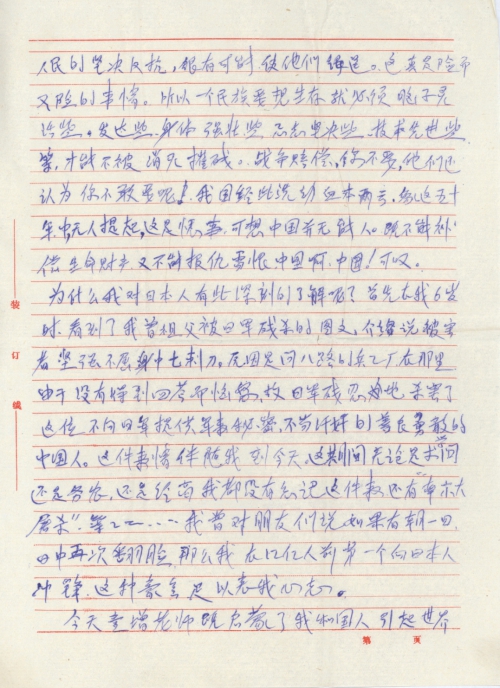 人民的坚决反抗，很有可能使他们倒退。这真是险而
又险的事情。所以一个民族要想生存就必须眼子亮
些，发达些，身体强壮些，意志坚决些，技术先进些
等，才能不被消灭摧残。战争赔偿，你不要，他们还
认为你不敢要呢！我国经此浩劫血本而亡，但这五十
年中，无人提起，这是恨事，可想中国并无能人。既不能补
偿生命财产，又不能报仇雪恨，中国啊，中国！可叹。
为什么我对日本人有些深刻的了解呢？首先在我6岁
时，看到了我曾祖父被日军残杀的图文，介绍说被害
者坚强不屈身中七刺刀。原因是问八路的兵工厂在那里
由于没有得到回答而恼怒，故日军残忍地杀害了
这位不向日军提供军事秘密，不当汗奸的善良勇敢的
中国人。这件事情伴随我到今天，这期间无论是求学
还是务农，还是经商我都没有忘记这件事，还有"南京大
屠杀"等等……我曾对朋友们说如果有朝一日，
日中再次翻脸，那么我在12亿人前第一个向日本人
冲锋，这种豪言足以表我心志。
今天童增老师既启蒙了我和国人引起世界
装
订
线
第 页